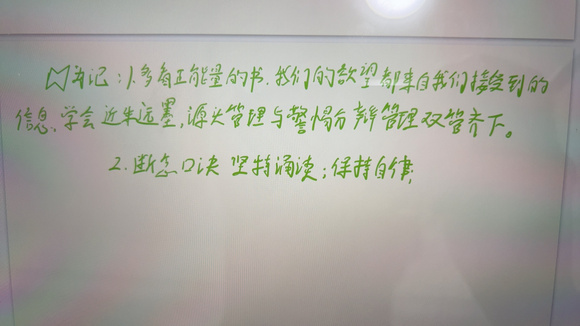 记：1.多看正能量的书.我们的欲望都来自我们接受到的
信息、学会近朱远墨,源头管理与警惕分辨管理双管齐下。
2.断念口决 坚持诵读;保持自律;